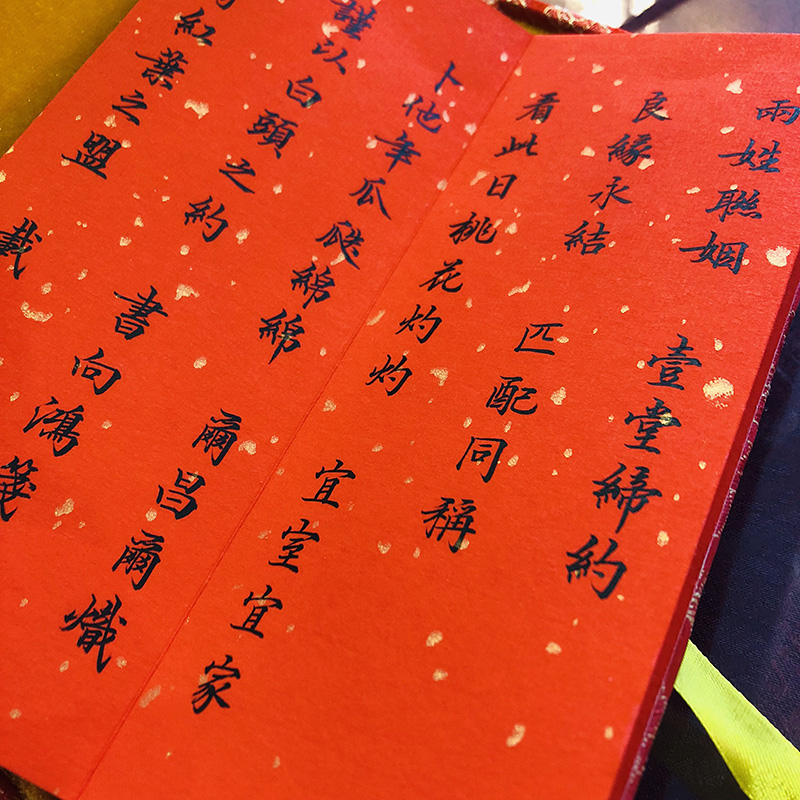 兩姓聯姻 壹堂締約
良緣永結 匹配同稱
看此日桃花灼灼 宜室宜家
卜他年瓜瓞綿綿 爾昌爾熾
謹以白頭之約 書向鴻箋
紅葉之盟 載